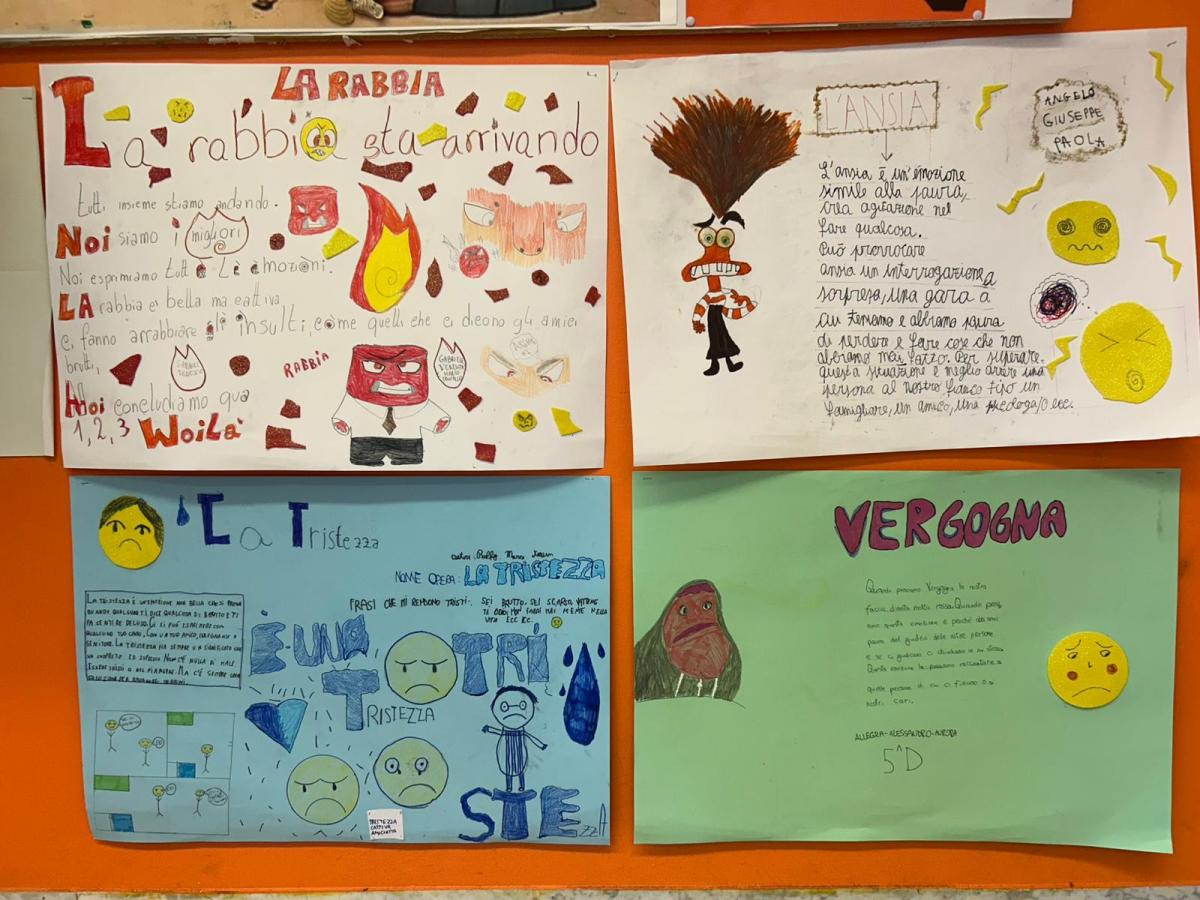 LA RABBIA
La rabbia sta arrivando
tutti insieme stiamo andando.
Noi siamo i migliori
Noi esprimiamo tutte le emozioni.
LA rabbia è bella ma cattiva
ci fanno arrabbiare gli insulti, come quelli che ci dicono gli amici
brutti,
Noi concludiamo qua
1, 2, 3 WOILÀ
RABBIA
L'ANSIA
ANGELO
GIUSEPPE
PAOLA
L'ansia è un'emozione
simile alla paura,
crea agitazione nel
fare qualcosa.
Può provocare
ansia un interrogazione a
sorpresa, una gara a
cui teniamo e abbiamo paura
di perdere e fare cose che non
abbiamo mai fatto. Per superare
questa situazione è meglio avere una
persona al nostro fianco tipo un
famigliare, un amico, una psicologa/o ecc.
La Tristezza
NOME OPERA: LA TRISTEZZA
FRASI CHE MI RENDONO TRISTI: SEI BRUTTO, SEI SCARSO, VATTENE
TI ODIO
VITA ECC ECC.
LA TRISTEZZA È UN'EMOZIONE NON BELLA CHE SI PROVA
QUANDO QUALCUNO TI DICE QUALCOSA DI BRUTTO E TI
FA SENTIRE DELUSO. CI SI PUÒ ESPRIMERE CON
QUALCUNO TUO CARO, CON UN TUO AMICO, INSEGNANTE O
GENITORE. LA TRISTEZZA HA SEMPRE UN SIGNIFICATO
NON C'È NULLA DI MALE
ESSERE TRISTI O NEL PIANGERE. MA C'È SEMPRE UNA
SOLUZIONE
È UNA
TRISTEZZA
TRI
STEZZA
TRISTEZZA
CATTIVA
VERGOGNA
Quando proviamo Vergogna la nostra
faccia diventa molto rossa. Quando proviamo
questa emozione è perché abbiamo
paura del giudizio delle altre persone
e se ci giudicano ci chiudiamo in noi stessi.
Questa emozione la possiamo raccontare a
quelle persone di cui ci fidiamo o ai
nostri cari.
ALLEGRA-ALESSANDRO-AURORA
5^D